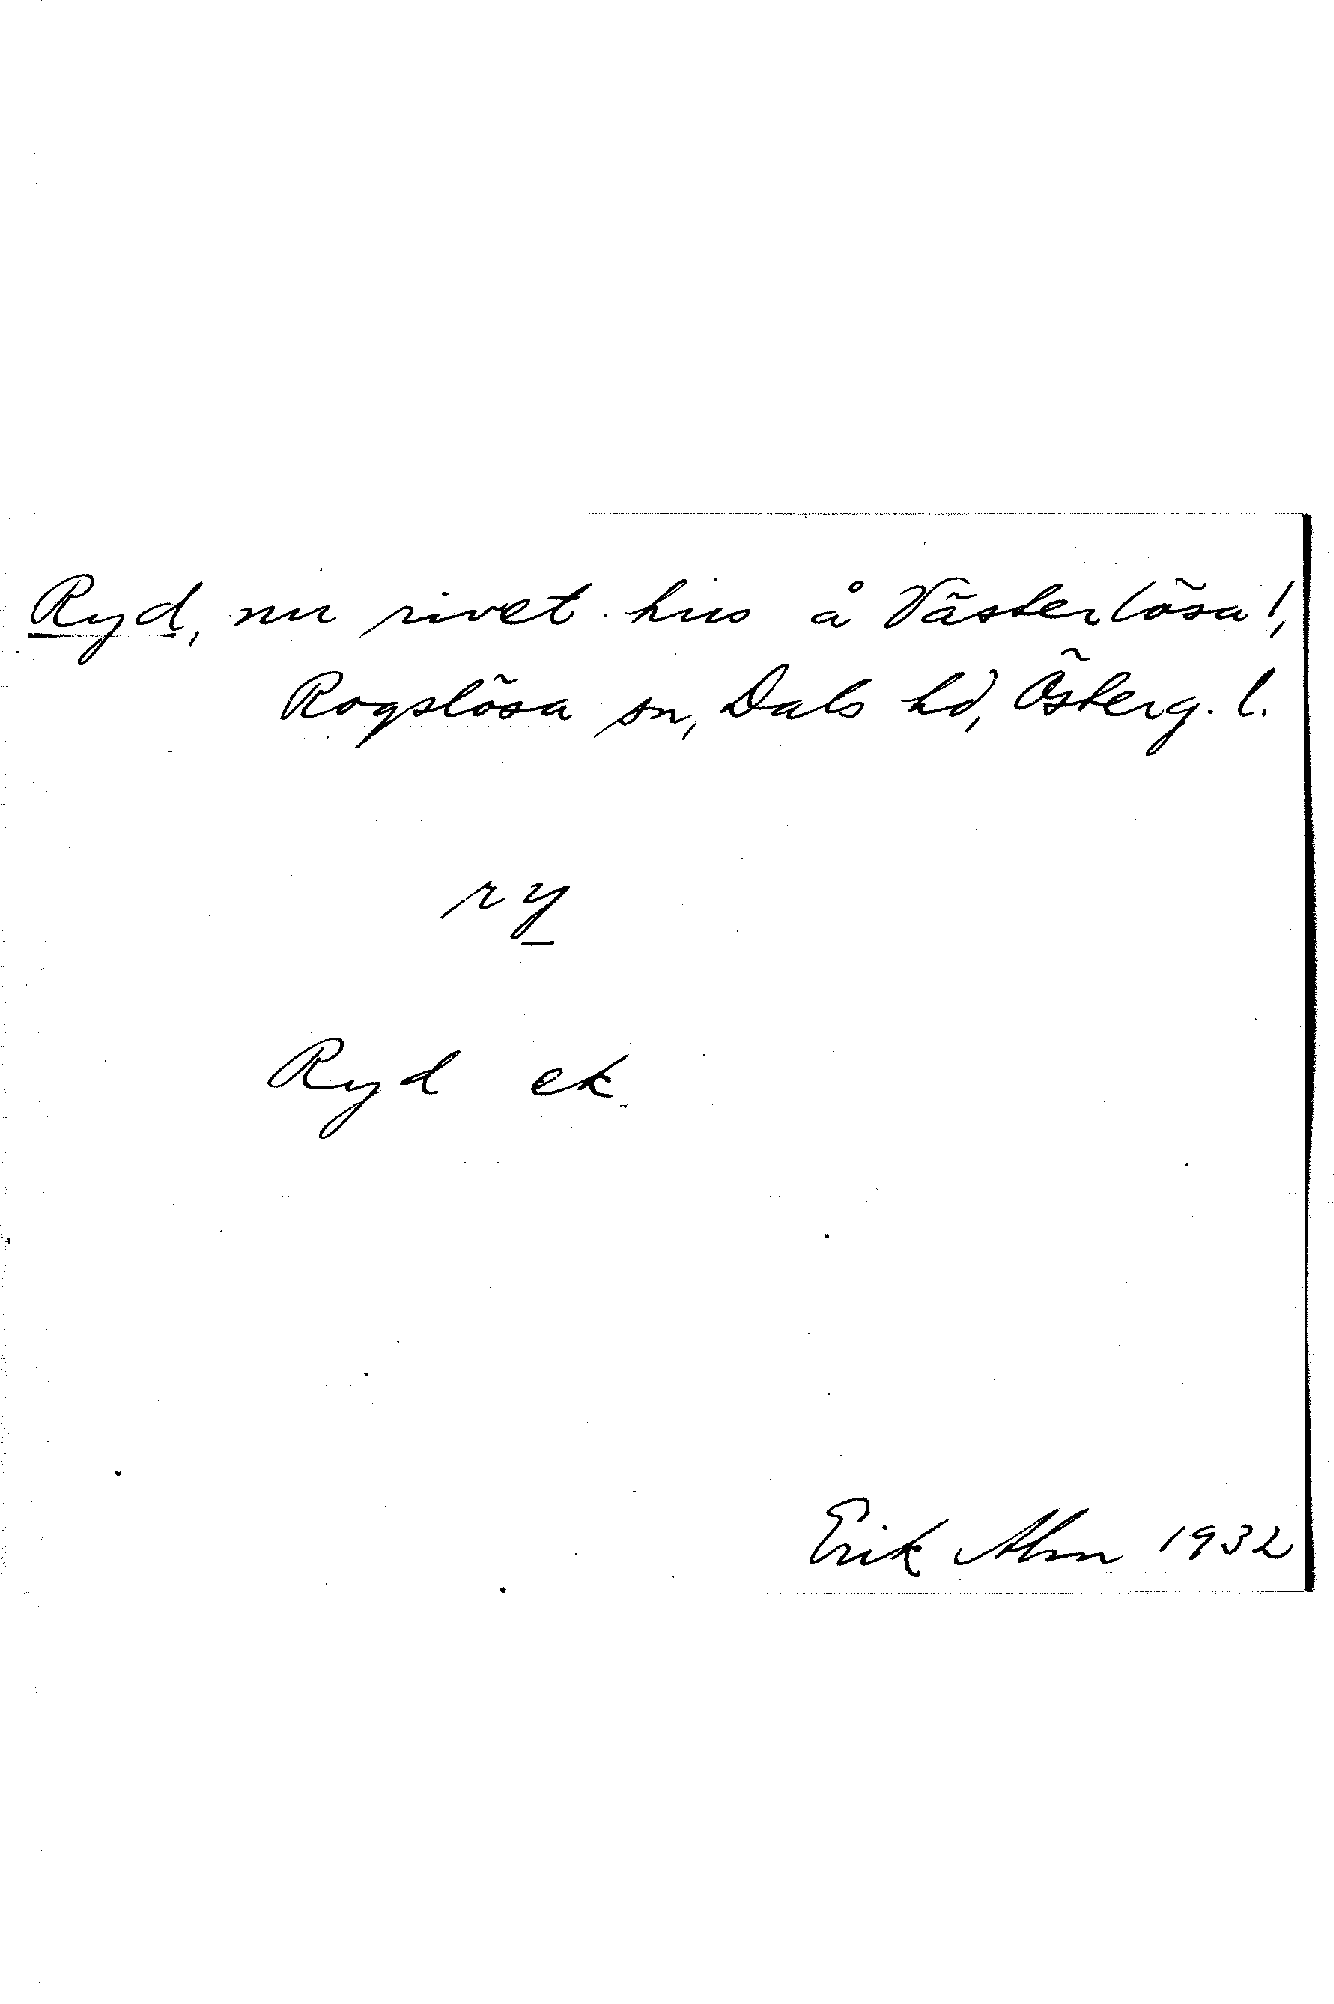 Ryd, nu rivet hus å Västerlösa!,
Rogslösa sn, Dals hd, Österg. l.
ry
Ryd ek.
Erik Alm 1932